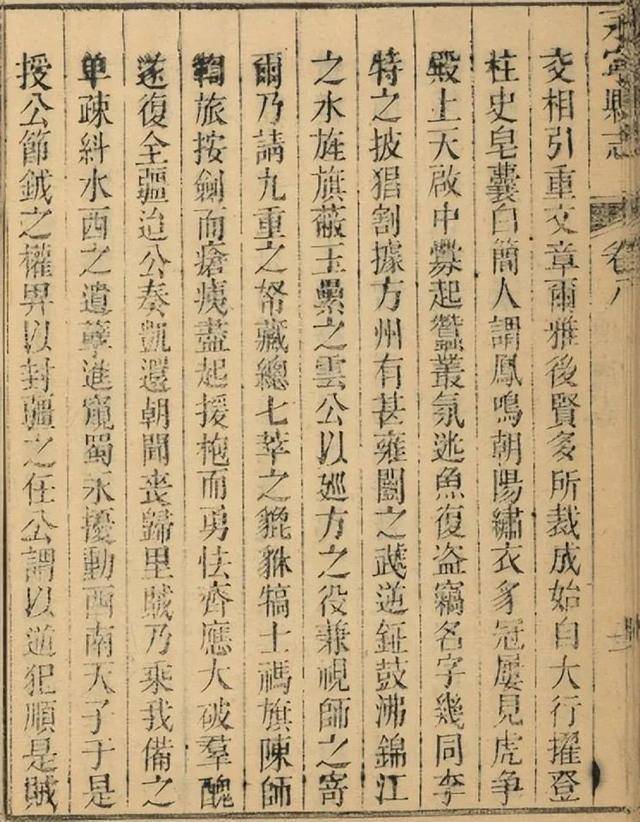 永寧縣志
卷八
交相引重文章爾雅後賢多所裁成始自大行擢登
柱史皂囊白簡人謂鳳鳴朝陽繡衣豸冠屢見虎爭
殿上天啟中釁起蠶叢氛迷魚復盜竊名字幾同李
特之披猖割據方州有甚雍闓之誠逆鉦鼓沸錦江
之水旌旗蔽玉壘之雲公以廵方之役兼視師之寄
爾乃請九重之帑藏總七萃之貔貅犒士禡旗陳師
鞠旅按劍而瘡痍盡起援枹而勇怯齊應大破羣醜
遂復全疆迨公奏凱還朝聞喪歸里賊乃乘我備之
单疎糾水西之遺孽進窺蜀永擾動西南天子于是
授公節鉞之權畀以封疆之任公謂以逆犯順是賊